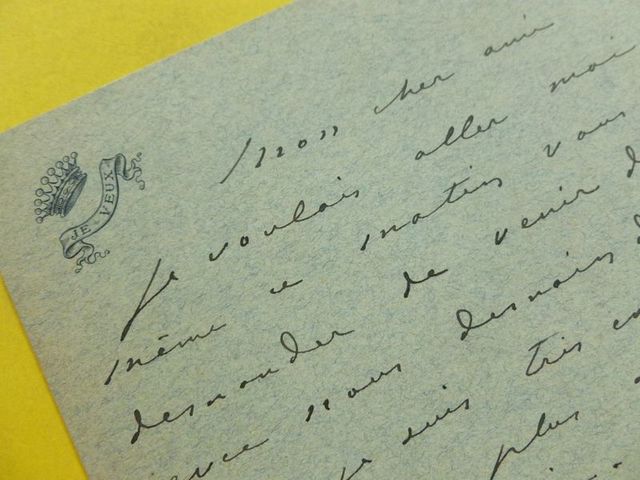 JE VEUX
Mon cher ami
Je voulais aller moi
même ce matin vous
demander de venir d
avec nous demain d
je suis très en
plus